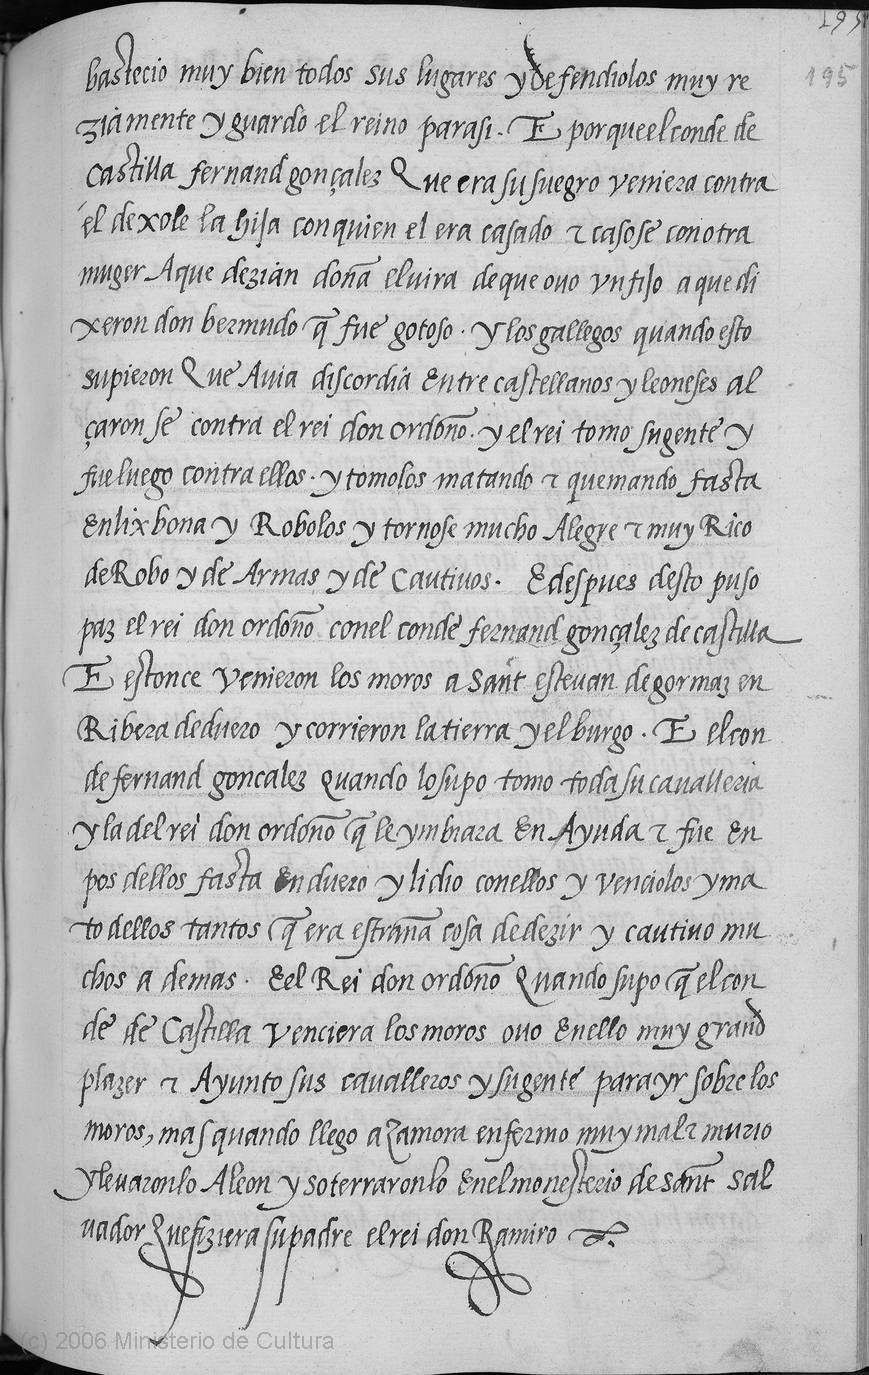 195
195
bastecio muy bien todos sus lugares y defendiolos muy re
ziamente y guardo el reino parasi. E porque el conde de
castilla fernand gonçalez Que era su suegro veniera contra
el dexole la hija con quien el era casado τ casose con otra
muger Aque dezian doña elvira de que ouo vn fijo a que di
xeron don bermudo q̃ fue gotoso. y los gallegos quando esto
supieron Que Auia discordia entre castellanos y leoneses al
çaron se contra el rei don ordoño. y el rei tomo su gente y
fue luego contra ellos. y tomolos matando τ quemando fasta
en lixbona y Robolos y tornose mucho Alegre τ muy Rico
de Robo y de Armas y de Cautiuos. E despues desto puso
paz el rei don ordoño con el conde fernand gonçalez de castilla
E estonce venieron los moros a sañt estevan de gormaz en
Ribera de duero y corrieron la tierra y el burgo. E el con
de fernand goncalez quando lo supo tomo toda su cavalleria
y la del rei don ordoño q̃ le ymbiara en Ayuda τ fue en
pos dellos fasta en duero y lidio con ellos y venciolos y ma
to dellos tantos q̃ era estraña cosa de dezir y cautiuo mu
chos a demas. E el Rei don ordoño Quando supo q̃ el con
de de Castilla venciera los moros ouo en ello muy grand
plazer τ Ayunto sus cavalleros y su gente para yr sobre los
moros, mas quando llego a Zamora enfermo muy mal τ murio
y levaronlo A leon y soterraronlo en el monesterio de sañt sal
uador Que fiziera su padre el rei don Ramiro
(c) 2006 Ministerio de Cultura